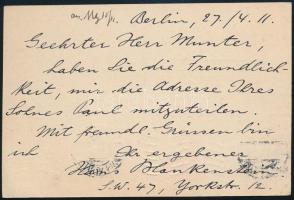 Berlin, 27./4. 11.
Geehrter Herr Munter,
haben Sie die Freundlich-
keit, mir die Adresse Ihres
Sohnes Paul mitzuteilen.
Mit freundl. Grüssen bin
ich Ihr ergebener
Hans Blankenstein
S.W. 47, Yorkstr. 12.